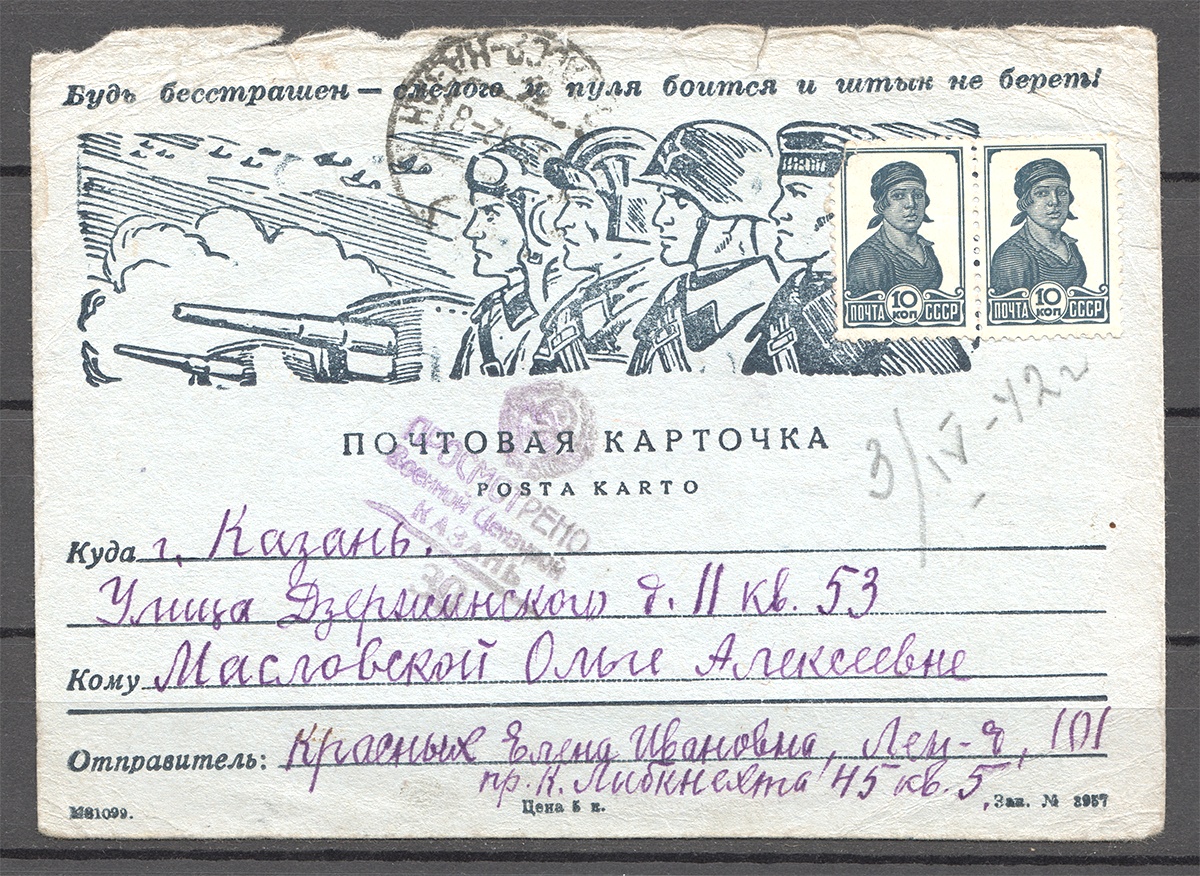 Будь бесстрашен — смелого и пуля боится и штык не берет!
ПОЧТА 10 КОП СССР
ПОЧТА 10 КОП СССР
3/IV-42 г
ПОЧТОВАЯ КАРТОЧКА
POSTA KARTO
ПРОСМОТРЕНО
Военной Цензурой
КАЗАНЬ
Куда г. Казань.
Улица Дзержинского д. 11 кв. 53
Кому Масловской Ольге Алексеевне
Отправитель: Красных Елена Ивановна, Лен-д, 101
пр. К. Либкнехта 45 кв. 5
М81099.
Цена 5 к.
Зак. № 3957